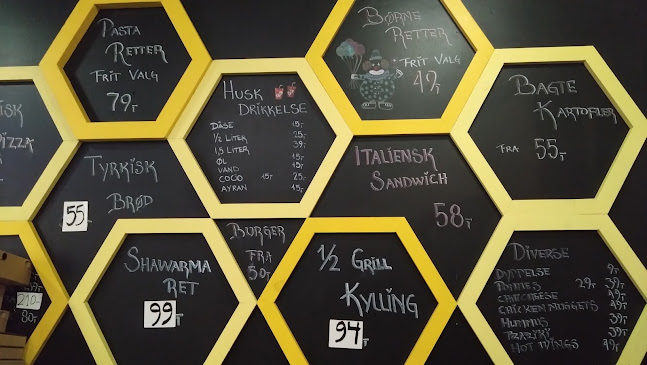 PASTA
RETTER
FRIT VALG
79,-
BØRNE
RETTER
FRIT VALG
49,-
HUSK
DRIKKELSE
DÅSE 15,-
1/2 LITER 25,-
1,5 LITER 39,-
ØL 15,-
VAND 15,-
COCIO 15,- 25,-
AYRAN 15,-
BAGTE
KARTOFLER
FRA 55,-
PIZZA
TYRKISK
BRØD
55
ITALIENSK
SANDWICH
58,-
BURGER
FRA
50,-
SHAWARMA
RET
99,-
1/2 GRILL
KYLLING
94,-
DIVERSE
DYPPELSE 9,-
POMMES 29,- 39,-
CHILICHEESE 49,-
CHICKEN NUGGETS 49,-
HUMMUS 39,-
TZAZIKI 39,-
HOT WINGS 49,-
210,-
80,-